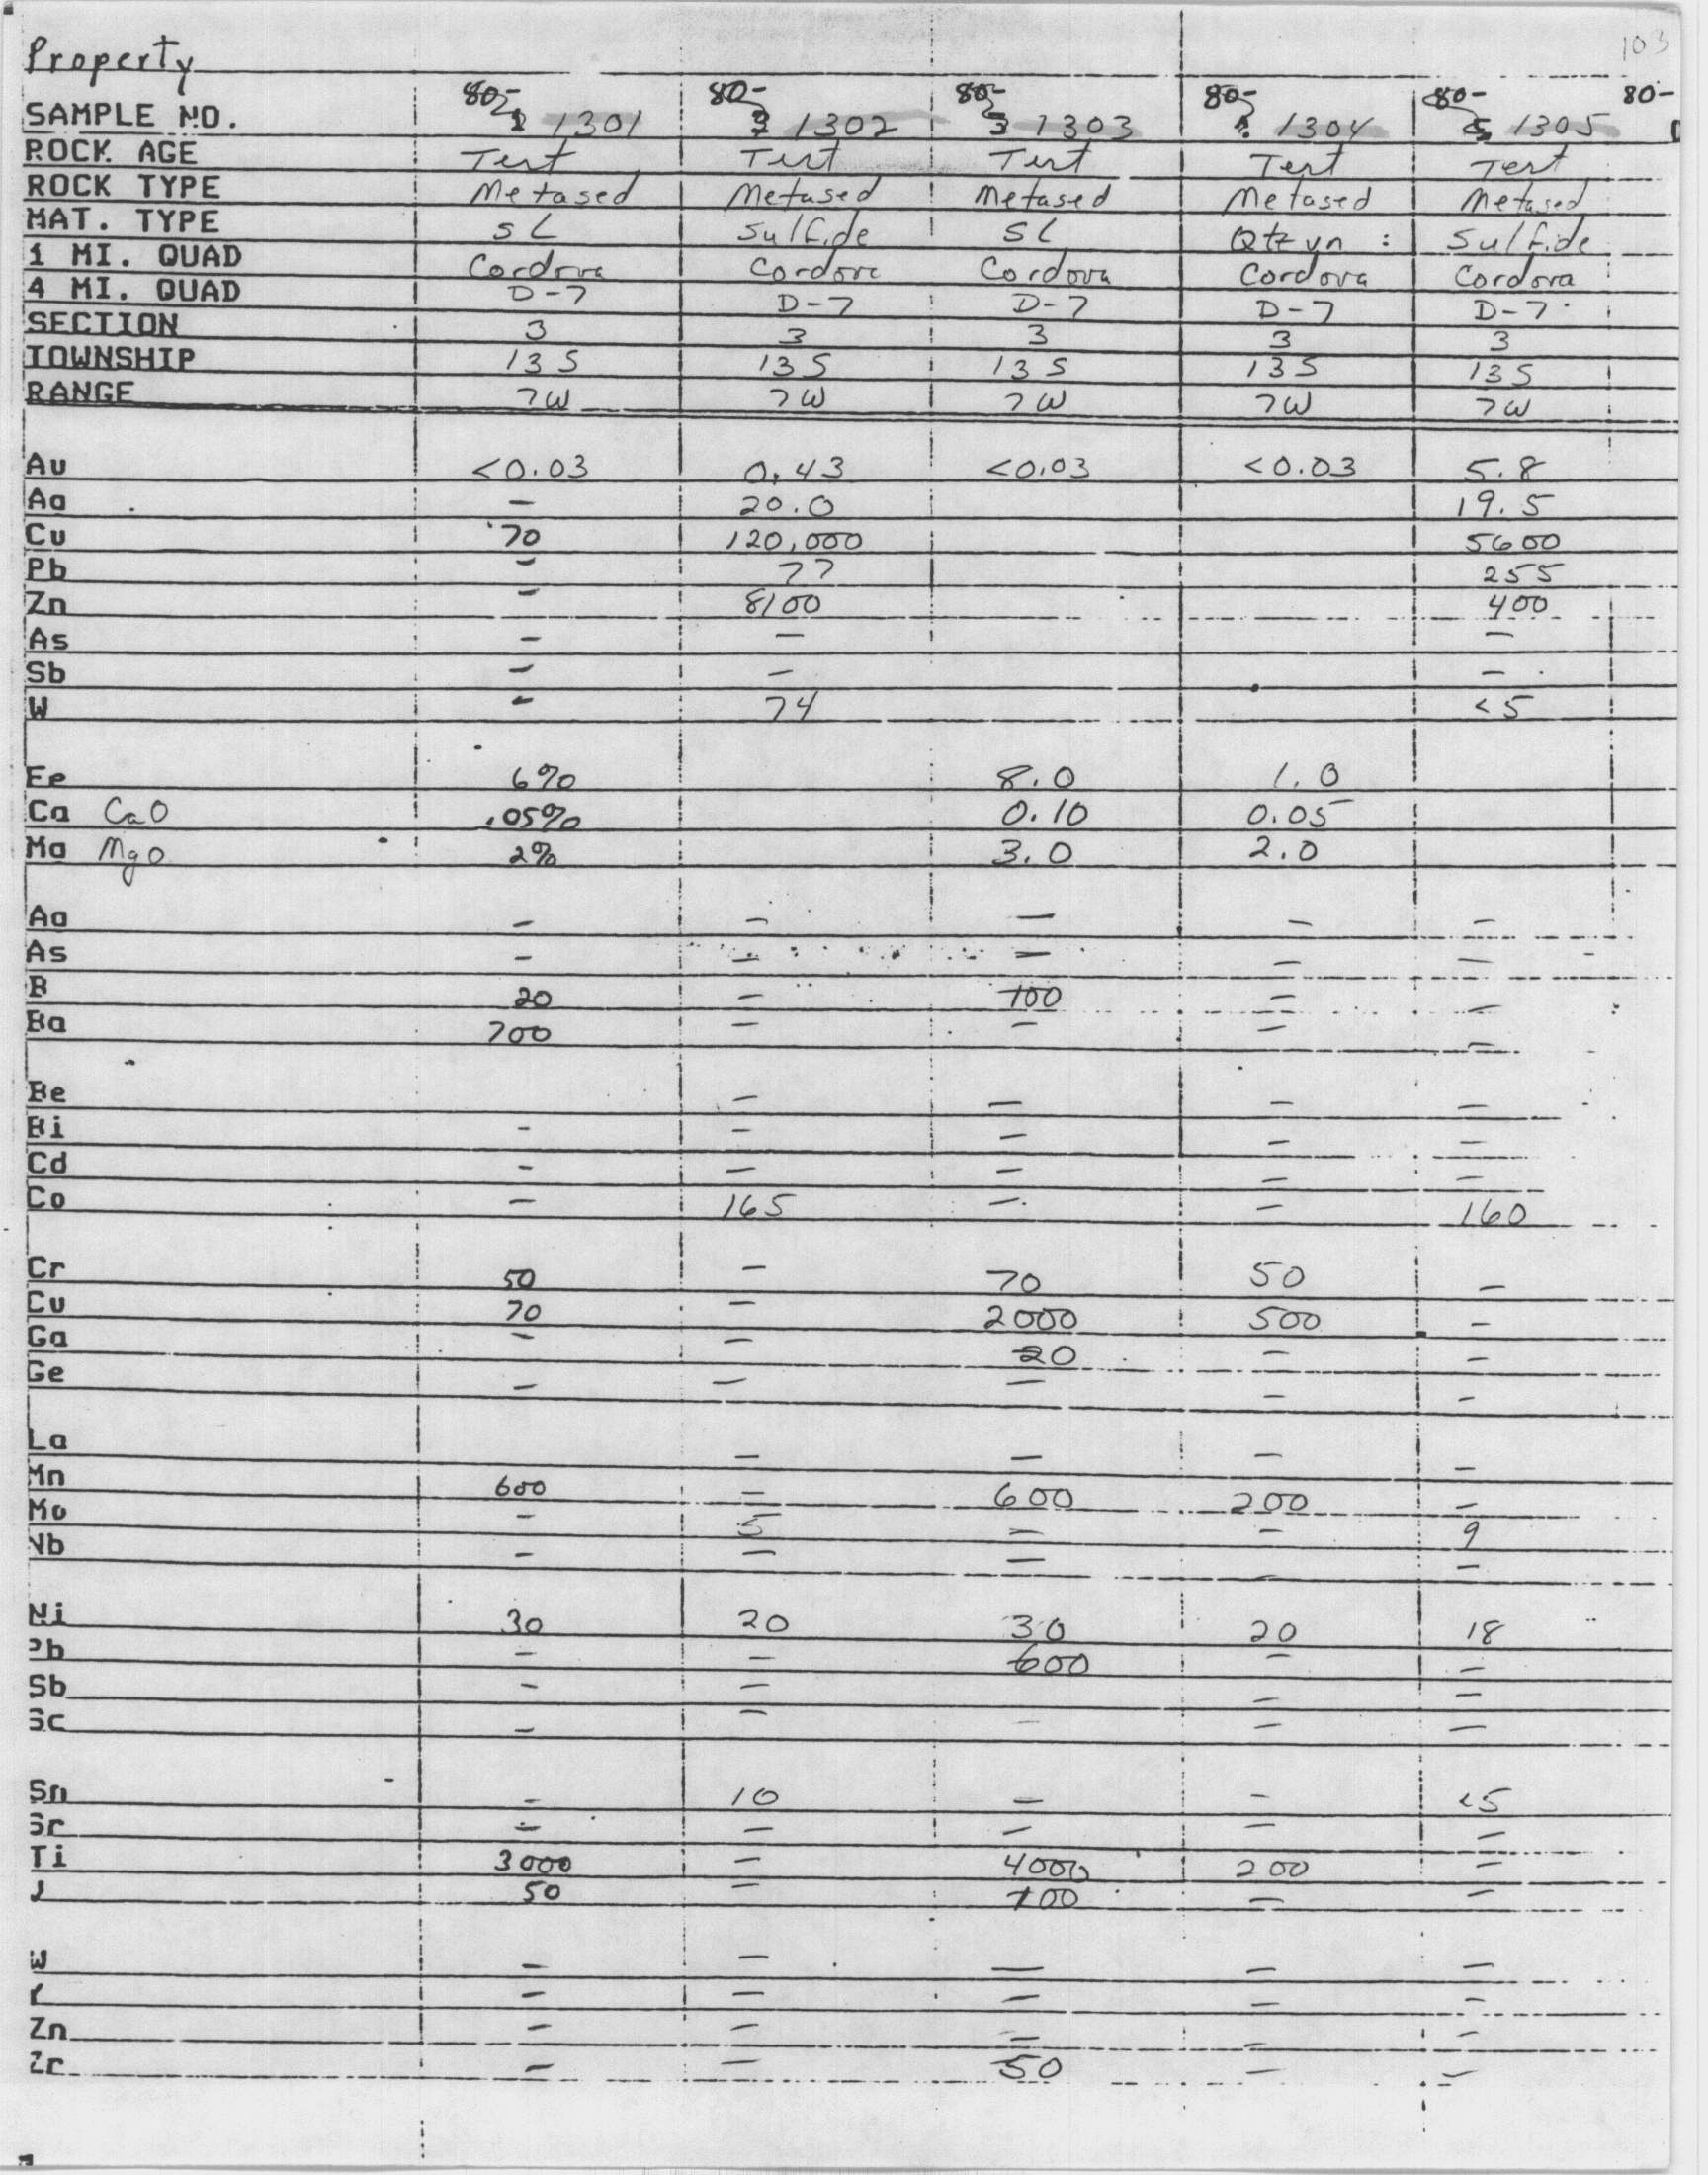 103
Property
SAMPLE NO. 80-1301 80-1302 80-1303 80-1304 80-1305 80-
ROCK AGE Tert Tert Tert Tert Tert
ROCK TYPE Metased Metased Metased Metased Metased
MAT. TYPE SL Sulfide SL Qtz vn : Sulfide
1 MI. QUAD Cordova Cordova Cordova Cordova Cordova
4 MI. QUAD D-7 D-7 D-7 D-7 D-7
SECTION 3 3 3 3 3
TOWNSHIP 13S 13S 13S 13S 13S
RANGE 7W 7W 7W 7W 7W
Au <0.03 0.43 <0.03 <0.03 5.8
Ag - 20.0 19.5
Cu 70 120,000 5600
Pb - 77 255
Zn - 8100 400
As - - -
Sb - - -
W - 74 <5
Fe 6% 8.0 1.0
Ca CaO .05% 0.10 0.05
Mg MgO 2% 3.0 2.0
Ag - - - - -
As - - - - -
B 20 - 100 - -
Ba 700 - - - -
Be - - - -
Bi - - - - -
Cd - - - - -
Co - 165 - - 160
Cr 50 - 70 50 -
Cu 70 - 2000 500 -
Ga - - 20 - -
Ge - - - - -
La - - - -
Mn 600 - 600 200 -
Mo - 5 - - 9
Nb - - - - -
Ni 30 20 30 20 18
Pb - - 600 - -
Sb - - - -
Sc - - - - -
Sn - 10 - - <5
Sr - - - - -
Ti 3000 - 4000 200 -
V 50 - 100 - -
W - - - - -
Y - - - - -
Zn - - - - -
Zr - - 50 - -